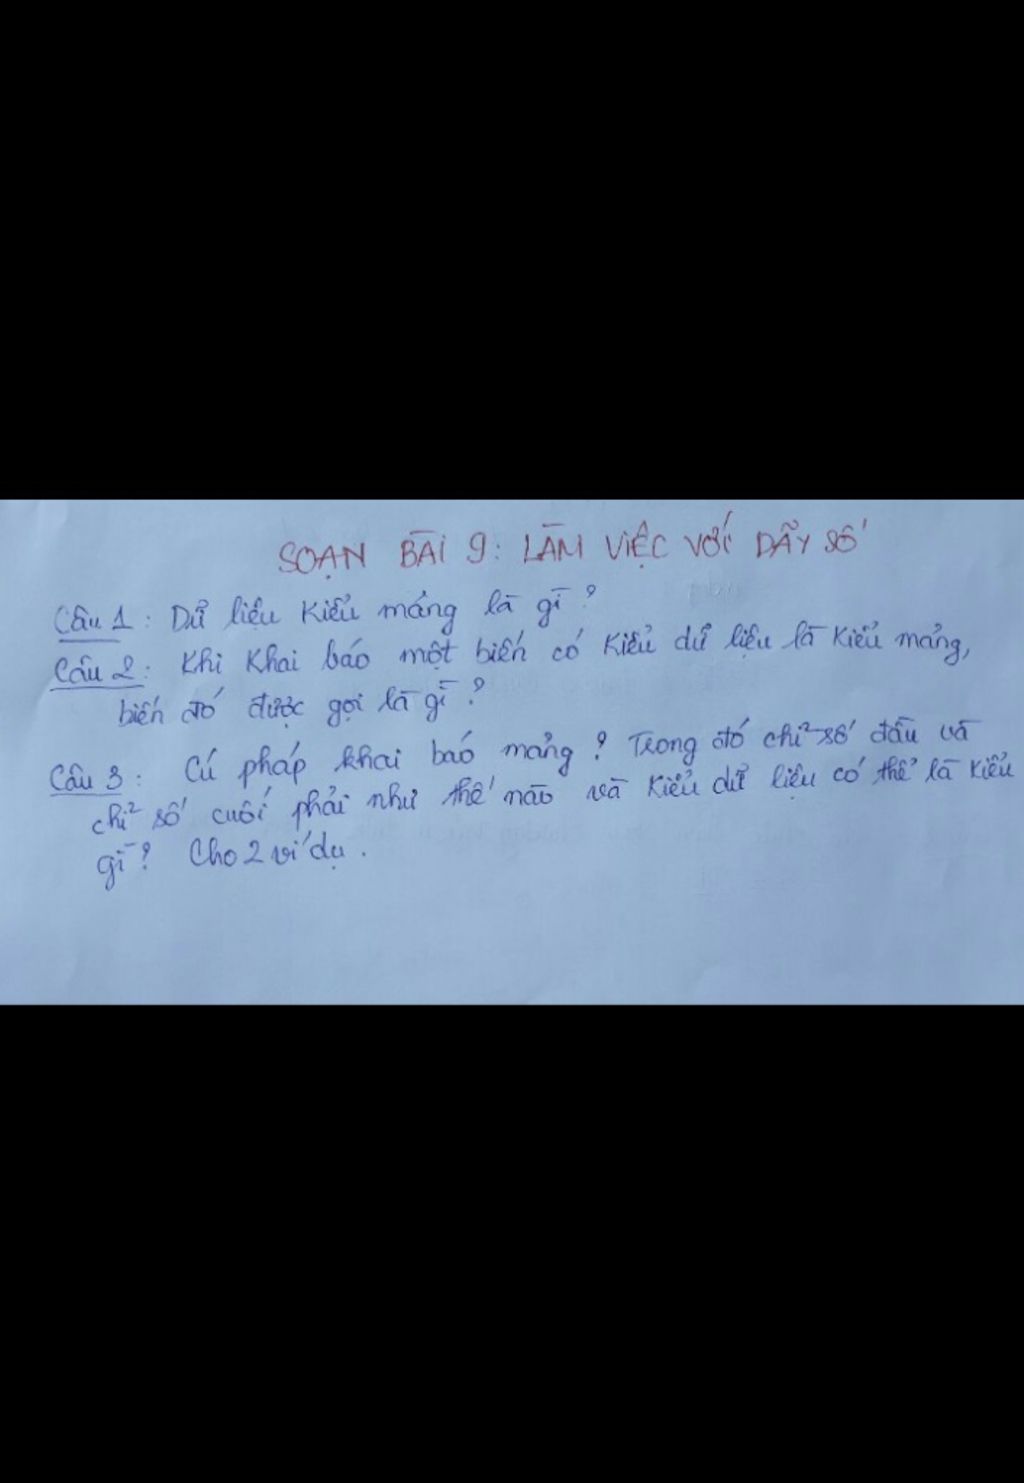 SOẠN BÀI 9: LÀM VIỆC VỚI DÃY SỐ
Câu 1: Dữ liệu kiểu mảng là gì?
Câu 2: Khi khai báo một biến có kiểu dữ liệu là kiểu mảng,
biến đó được gọi là gì?
Câu 3: Cú pháp khai báo mảng? Trong đó chỉ số đầu và
chỉ số cuối phải như thế nào và kiểu dữ liệu có thể là kiểu
gì? Cho 2 ví dụ.